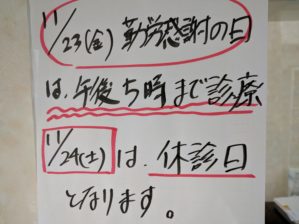 11/23(金) 勤労感謝の日
は、午後5時まで診療
11/24(土)は、休診日
となります。